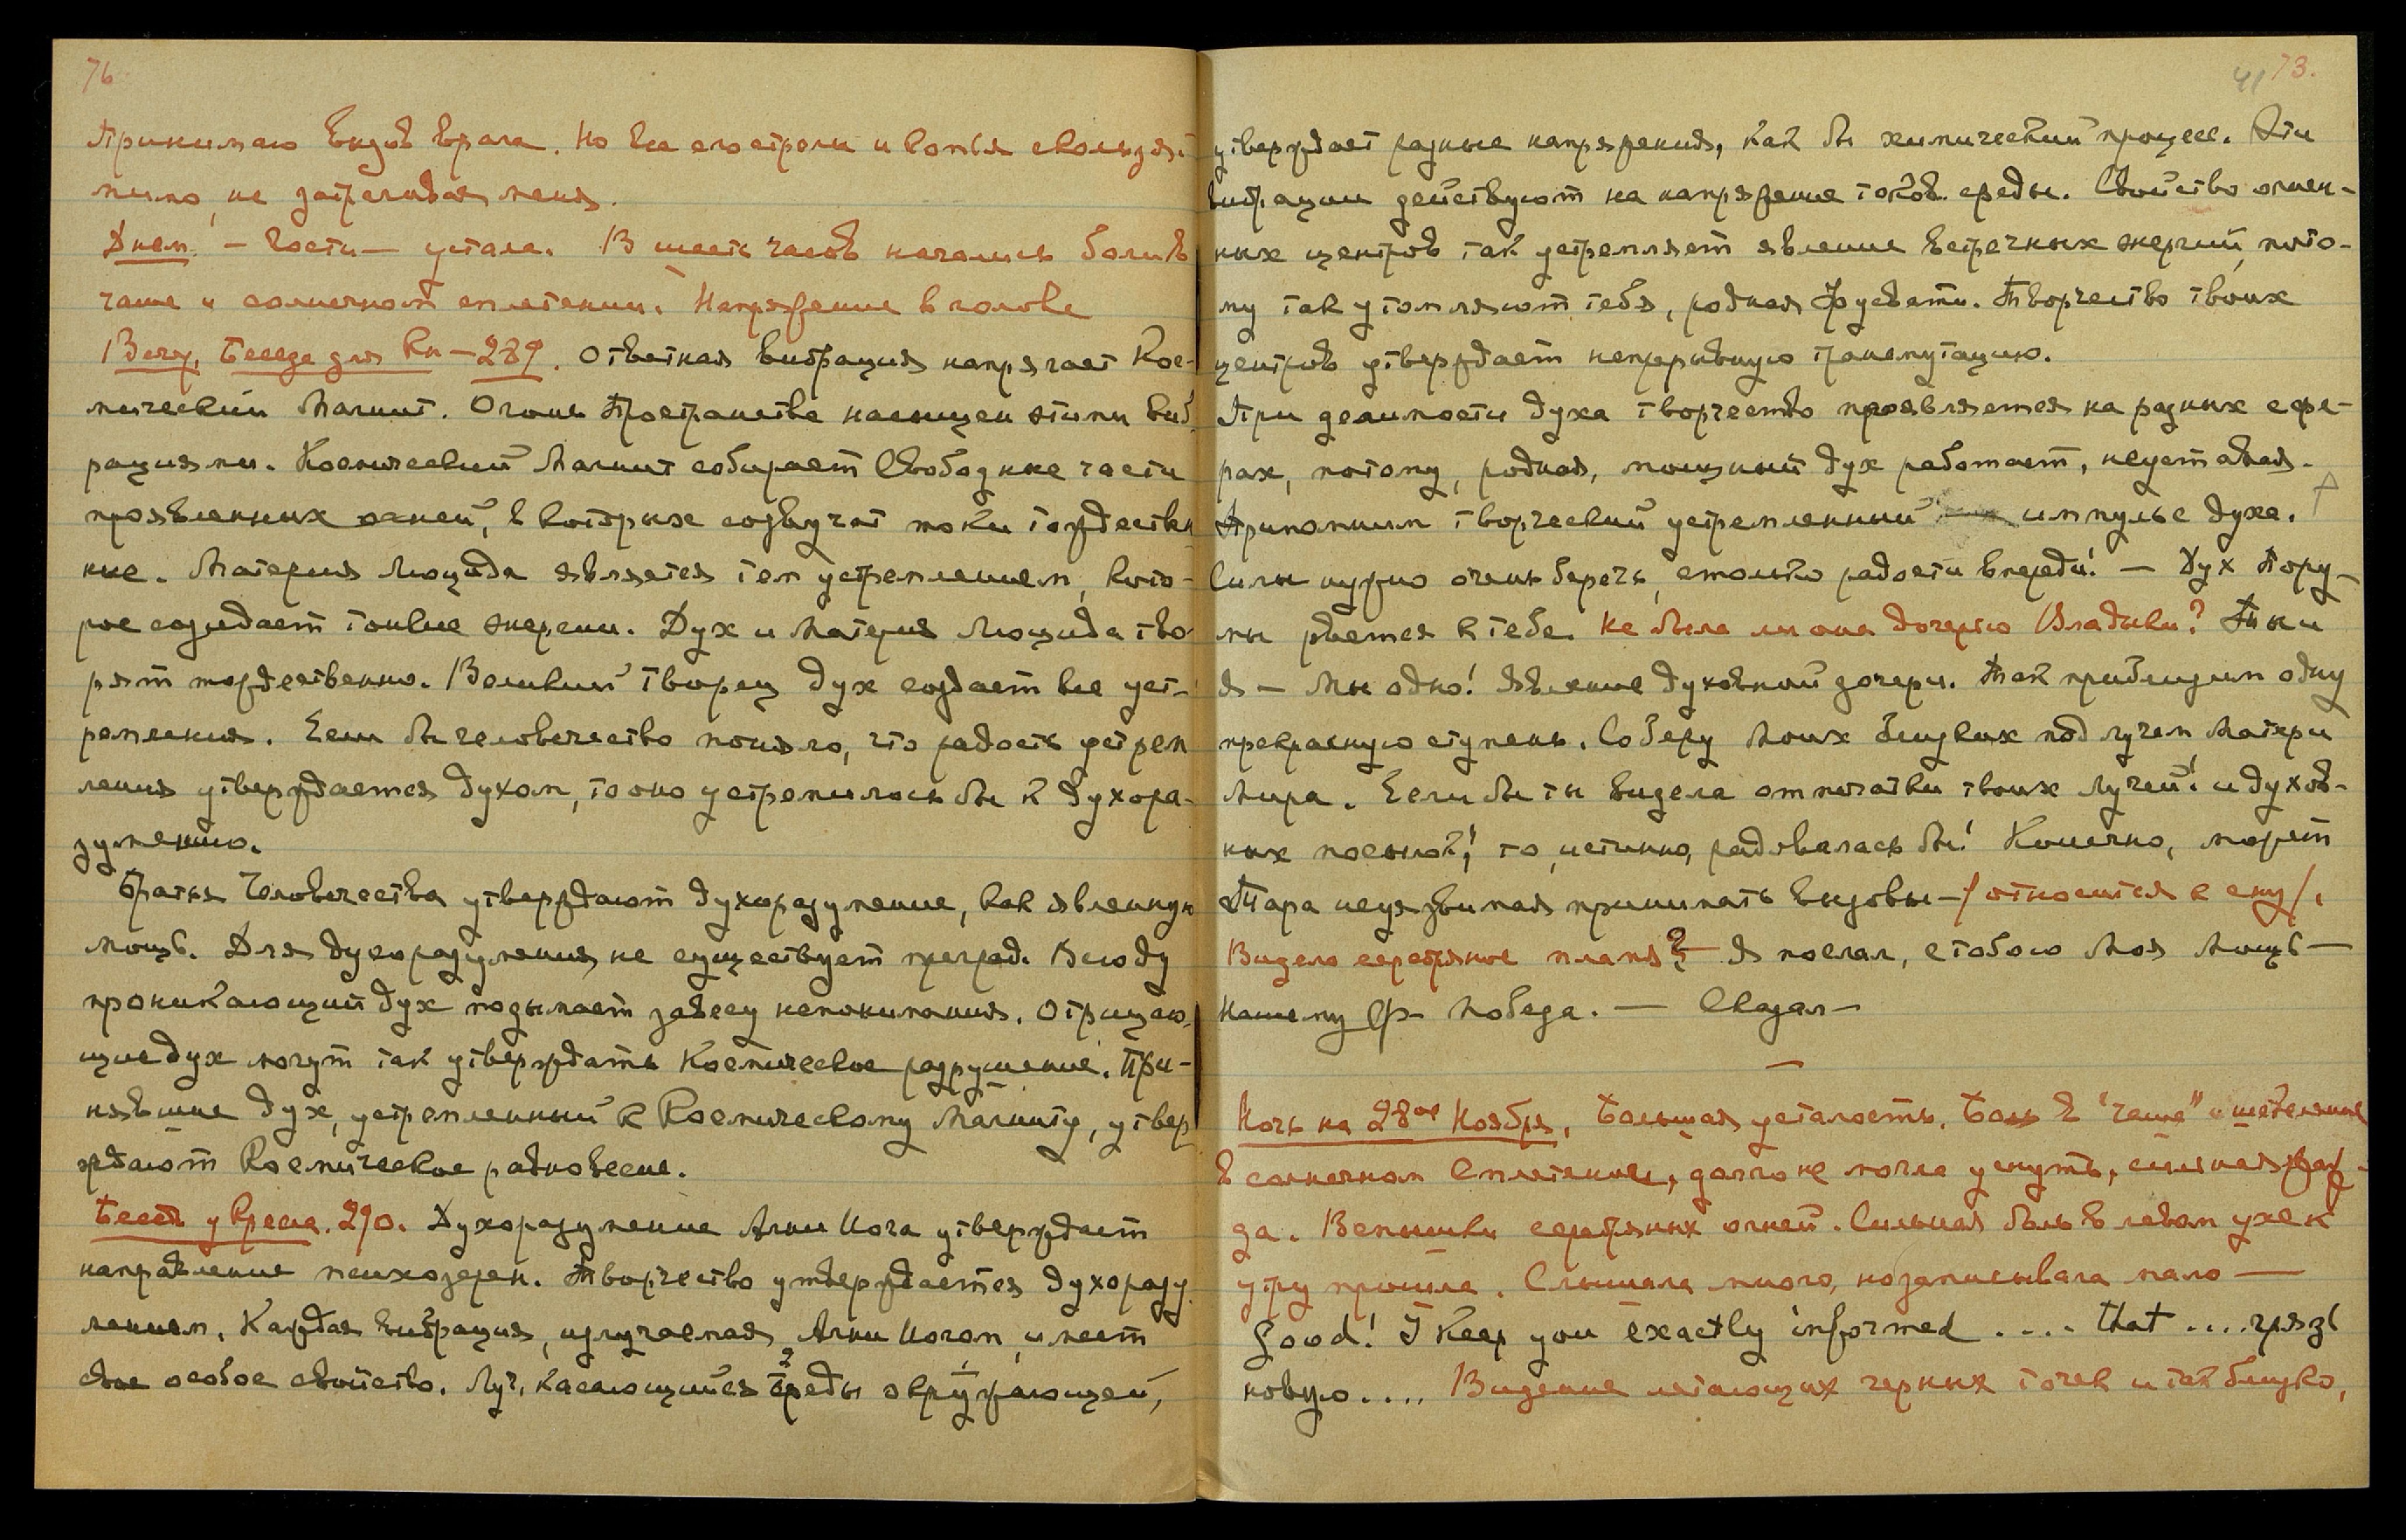 76
Принимаю вызов врага. Но все его стрелы и копья скользят
мимо, не затрагивая меня.
Днем. – Гости – устала. В шесть часов начались боли в
чаше и солнечном сплетении. Напряжение в голове
Веч. Беседа для Кн – 289. Ответная вибрация напрягает Кос-
мический Магнит. Огонь Пространства насыщен этими виб-
рациями. Космический Магнит собирает свободные части
проявленных огней, в которых созвучат токи тождествен
ные. Материя Люцида является тем устремлением, кото-
рое созидает тонкие энергии. Дух и Материя Люцида тво-
рят тождественно. Великий Творец дух создает все уст-
ремления. Если бы человечество поняло, что радость устрем
ления утверждается духом, то оно устремилось бы к духора-
зумению.
Братья Человечества утверждают духоразумение, как явленную
мощь. Для духоразумения не существует преград. Всюду
проникающий дух подымает завесу непонимания. Отрицаю-
щие дух могут так утверждать Космическое разрушение. При-
нявшие дух, устремленный к Космическому Магниту, утвер
ждают Космическое равновесие.
Бесед у Кресла. 290. Духоразумение Агни Йога утверждает
направление психозерен. Творчество утверждается духоразу
мением. Каждая вибрация, излучаемая Агни Йогом, имеет
свое особое свойство. Луч, касающийся среды окружающей,
41 73.
утверждает разные напряжения, как бы химический процесс. Эти
вибрации действуют на напряжение токов среды. Свойство огнен-
ных центров так устремляет явление встречных энергий, пото-
му так утомляют тебя, родная Урусвати. Творчество твоих
центров утверждает непрерывную трансмутацию.
При делимости духа творчество проявляется на разных сфе-
рах, потому, родная, мощный дух работает, неуставая.
Припомним творческий устремленный импульс духа.
Силы нужно очень беречь, столько радости впереди! – Дух Пору-
мы рвется к тебе. Не была ли она дочерью Владыки? Ты и
Я – Мы одно! Явление духовной дочери. Так приблизим одну
прекрасную ступень. Соберу Моих близких под лучем Матери
Мира. Если бы ты видела отпечатки твоих лучей! и духов-
ных посылок! то, истинно, радовалась бы! Конечно, может
Тара неуязвимая принимать вызовы – /относится к сну/.
Видела серебряное пламя? – Я послал, с тобою Моя Мощь –
Нашему Ф. Победа. – Сказал –
Ночь на 28ое Ноября. Большая усталость. Боль в "чаше" и шевеление
в солнечном сплетении, долго не могла уснуть, сильная жаж-
да. Вспышки серебряных огней. Сильная боль в левом ухе к
утру прошла. Слышала много, но записывала мало –
Good! I keep you exactly informed .... that .... грязь
новую .... Видение летающих черных точек и так близко,